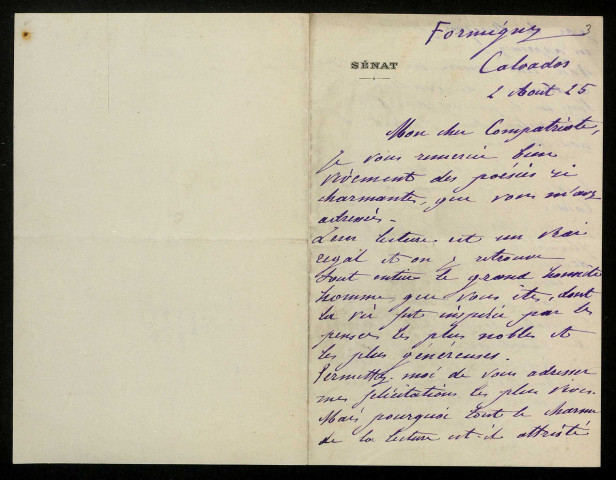 3
Formigny
SÉNAT
Calvados
2 Août 25
Mon cher Compatriote,
Je vous remercie bien
vivement des poésies si
charmantes, que vous m'avez
adressées.
Leur lecture est un vrai
régal et on y retrouve
tout entier le grand honnête
homme que vous êtes, dont
la vie fut inspirée par les
pensées les plus nobles et
les plus généreuses.
Permettez moi de vous adresser
mes félicitations les plus vives.
Mais pourquoi tout le charme
de la lecture est-il attristé